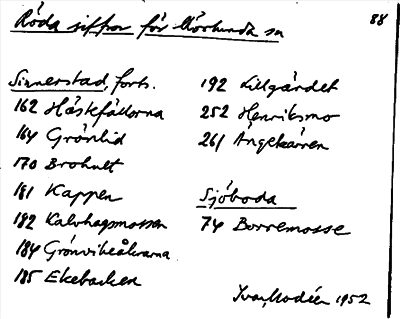 Röda siffror för Mörlunda sn
88
Sinnerstad, forts.
162 Hästefällorna
164 Grönlid
170 Brohult
181 Kappen
182 Kalvhagsmossen
184 Grönviksåkrarna
185 Ekebacken
192 Lillgärdet
252 Henriksmo
261 Ängekärren
Sjöboda
74 Borremosse
Ivar Modéer 1952